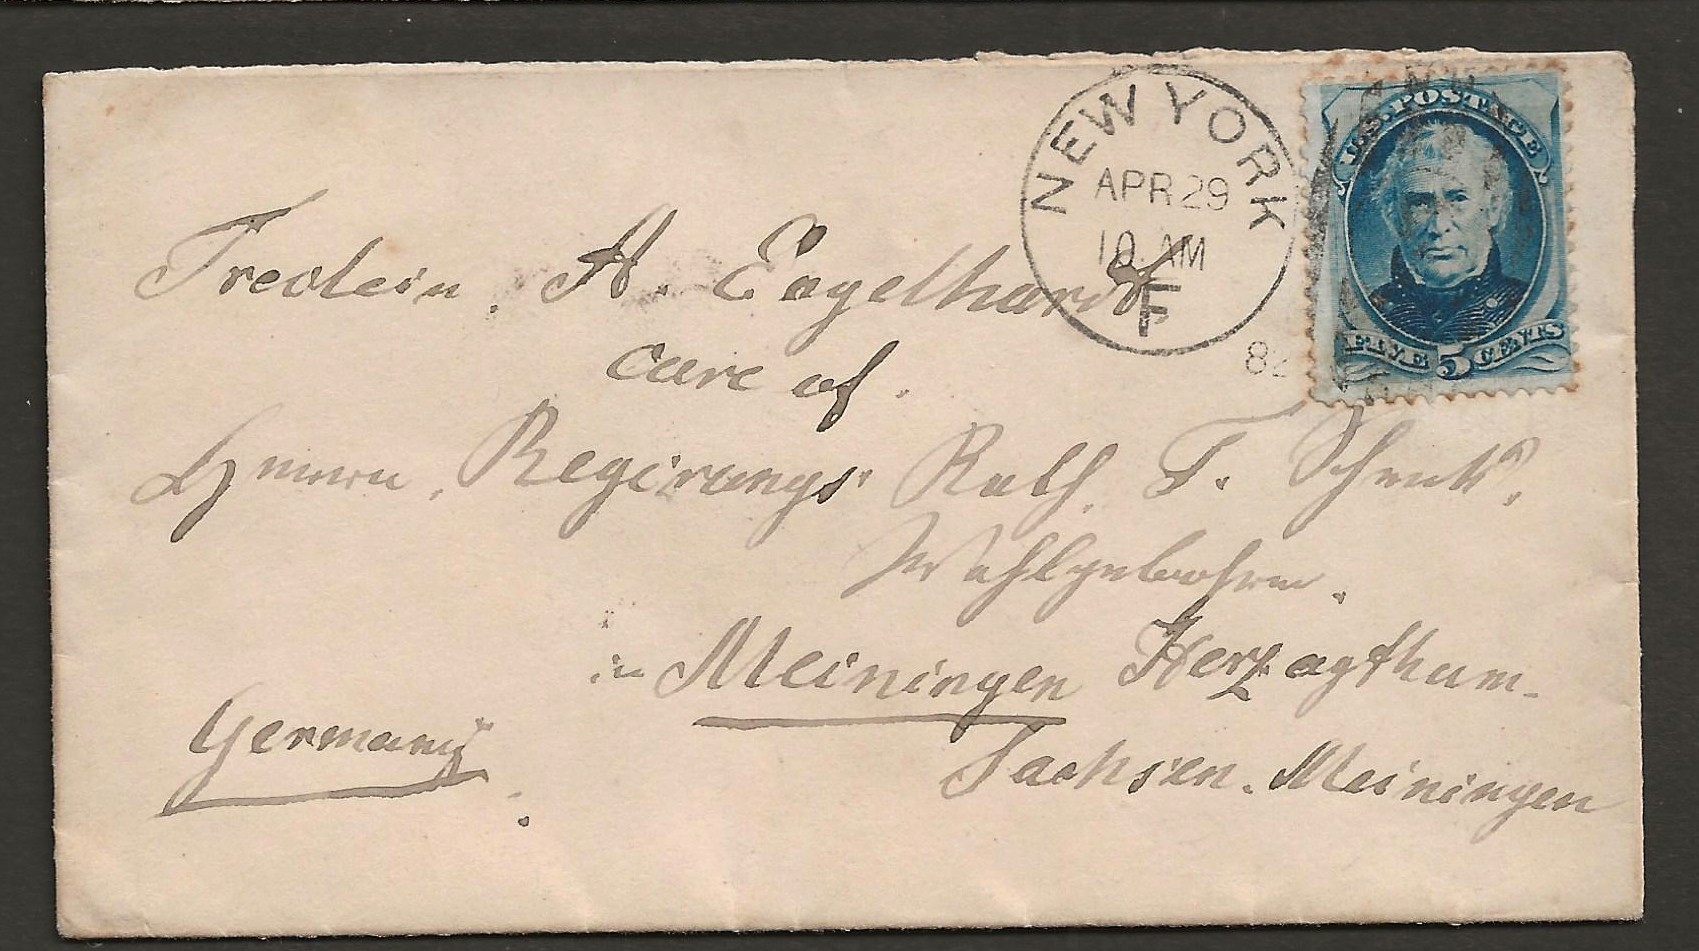 NEW YORK
APR 29
10 AM
F
82
U.S. POSTAGE
FIVE 5 CENTS
Freolein. A. Engelhardt
care of.
Herrn Regirungs Rath. T. Schenk.
Wohlgebohren.
in Meiningen Herzogthum
Germany
Sachsen. Meiningen